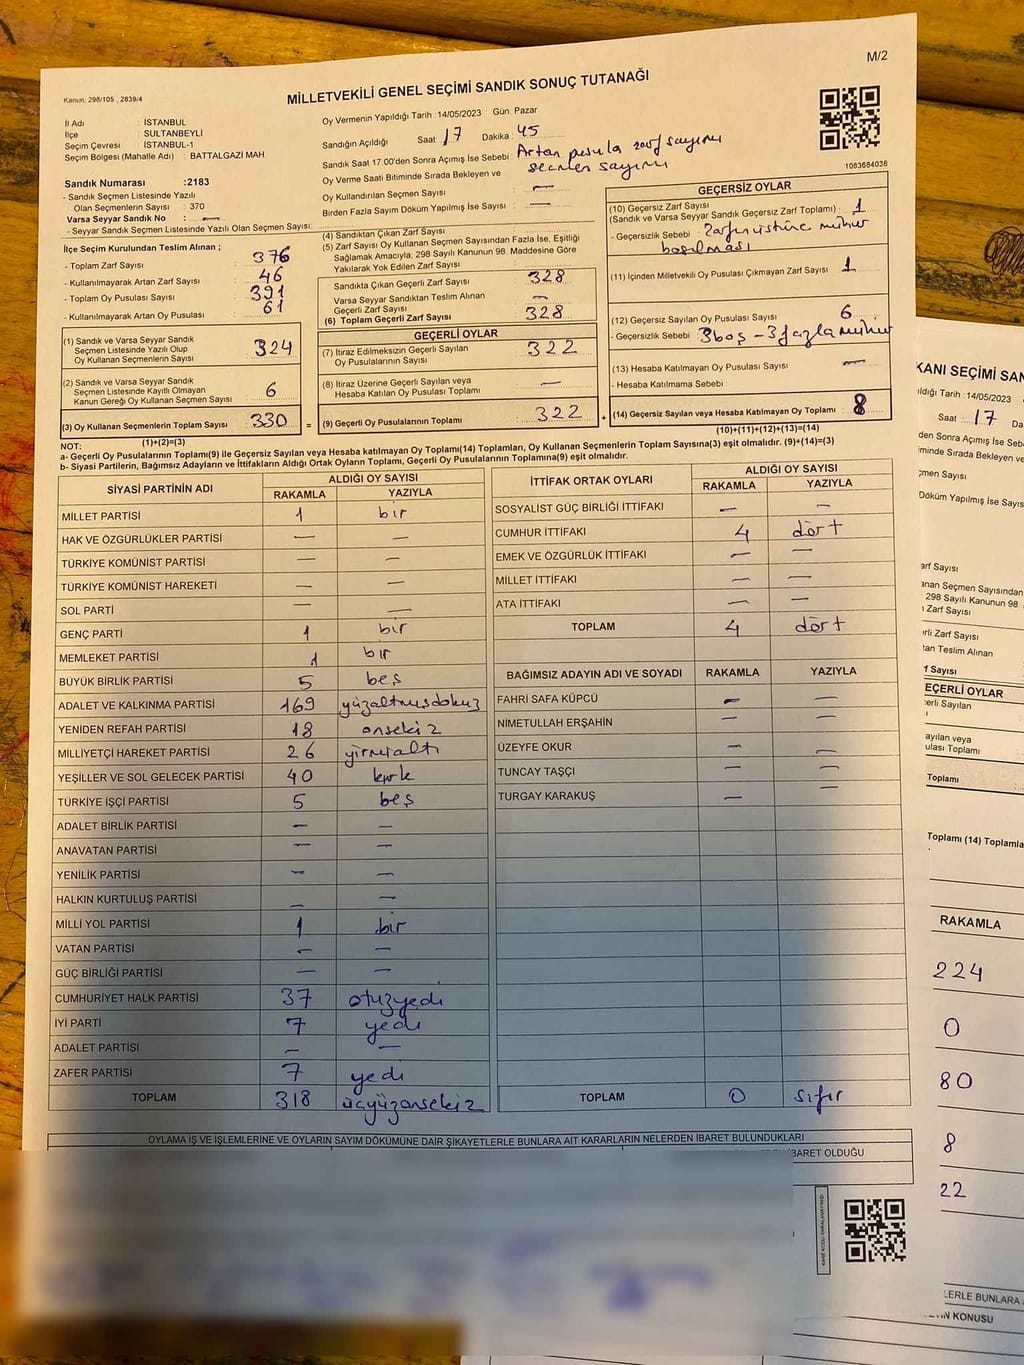 M/2
Kanun: 298/105 , 2839/4
MİLLETVEKİLİ GENEL SEÇİMİ SANDIK SONUÇ TUTANAĞI
İl Adı : İSTANBUL
İlçe : SULTANBEYLİ
Seçim Çevresi : İSTANBUL-1
Seçim Bölgesi (Mahalle Adı) : BATTALGAZİ MAH
Sandık Numarası :2183
- Sandık Seçmen Listesinde Yazılı
Olan Seçmenlerin Sayısı : 370
Varsa Seyyar Sandık No : —
- Seyyar Sandık Seçmen Listesinde Yazılı Olan Seçmen Sayısı:
İlçe Seçim Kurulundan Teslim Alınan ;
- Toplam Zarf Sayısı : 376
- Kullanılmayarak Artan Zarf Sayısı : 46
- Toplam Oy Pusulası Sayısı : 391
- Kullanılmayarak Artan Oy Pusulası : 61
(1) Sandık ve Varsa Seyyar Sandık
Seçmen Listesinde Yazılı Olup
Oy Kullanan Seçmenlerin Sayısı : 324
(2) Sandık ve Varsa Seyyar Sandık
Seçmen Listesinde Kayıtlı Olmayan
Kanun Gereği Oy Kullanan Seçmen Sayısı : 6
(3) Oy Kullanan Seçmenlerin Toplam Sayısı : 330 =
(1)+(2)=(3)
Oy Vermenin Yapıldığı Tarih : 14/05/2023 Gün: Pazar
Sandığın Açıldığı Saat: 17 Dakika : 45
Sandık Saat 17:00'den Sonra Açımış İse Sebebi : Artan pusula zarf sayımı
seçmen sayımı
Oy Verme Saati Bitiminde Sırada Bekleyen ve
Oy Kullandırılan Seçmen Sayısı : —
Birden Fazla Sayım Döküm Yapılmış İse Sayısı : —
(4) Sandıktan Çıkan Zarf Sayısı
(5) Zarf Sayısı Oy Kullanan Seçmen Sayısından Fazla İse, Eşitliği
Sağlamak Amacıyla, 298 Sayılı Kanunun 98. Maddesine Göre
Yakılarak Yok Edilen Zarf Sayısı
Sandıkta Çıkan Geçerli Zarf Sayısı : 328
Varsa Seyyar Sandıktan Teslim Alınan
Geçerli Zarf Sayısı : —
(6) Toplam Geçerli Zarf Sayısı : 328
GEÇERLİ OYLAR
(7) İtiraz Edilmeksizin Geçerli Sayılan
Oy Pusulalarının Sayısı : 322
(8) İtiraz Üzerine Geçerli Sayılan veya
Hesaba Katılan Oy Pusulası Toplamı : —
(9) Geçerli Oy Pusulalarının Toplamı : 322 +
1083684038
GEÇERSİZ OYLAR
(10) Geçersiz Zarf Sayısı
(Sandık ve Varsa Seyyar Sandık Geçersiz Zarf Toplamı) : 1
- Geçersizlik Sebebi : Zarfın üstüne mühür
basılması
(11) İçinden Milletvekili Oy Pusulası Çıkmayan Zarf Sayısı : 1
(12) Geçersiz Sayılan Oy Pusulası Sayısı : 6
- Geçersizlik Sebebi : 3boş - 3fazla mühür
(13) Hesaba Katılmayan Oy Pusulası Sayısı : —
- Hesaba Katılmama Sebebi :
(14) Geçersiz Sayılan veya Hesaba Katılmayan Oy Toplamı : 8
(10)+(11)+(12)+(13)=(14)
NOT:
a- Geçerli Oy Pusulalarının Toplamı(9) ile Geçersiz Sayılan veya Hesaba katılmayan Oy Toplamı(14) Toplamları, Oy Kullanan Seçmenlerin Toplam Sayısına(3) eşit olmalıdır. (9)+(14)=(3)
b- Siyasi Partilerin, Bağımsız Adayların ve İttifakların Aldığı Ortak Oyların Toplamı, Geçerli Oy Pusulalarının Toplamına(9) eşit olmalıdır.
SİYASİ PARTİNİN ADI ALDIĞI OY SAYISI
RAKAMLA YAZIYLA
MİLLET PARTİSİ 1 bir
HAK VE ÖZGÜRLÜKLER PARTİSİ — —
TÜRKİYE KOMÜNİST PARTİSİ — —
TÜRKİYE KOMÜNİST HAREKETİ — —
SOL PARTİ — —
GENÇ PARTİ 1 bir
MEMLEKET PARTİSİ 1 bir
BÜYÜK BİRLİK PARTİSİ 5 beş
ADALET VE KALKINMA PARTİSİ 169 yüzaltmışdokuz
YENİDEN REFAH PARTİSİ 18 onsekiz
MİLLİYETÇİ HAREKET PARTİSİ 26 yirmialtı
YEŞİLLER VE SOL GELECEK PARTİSİ 40 kırk
TÜRKİYE İŞÇİ PARTİSİ 5 beş
ADALET BİRLİK PARTİSİ — —
ANAVATAN PARTİSİ — —
YENİLİK PARTİSİ — —
HALKIN KURTULUŞ PARTİSİ — —
MİLLİ YOL PARTİSİ 1 bir
VATAN PARTİSİ — —
GÜÇ BİRLİĞİ PARTİSİ — —
CUMHURİYET HALK PARTİSİ 37 otuzyedi
İYİ PARTİ 7 yedi
ADALET PARTİSİ — —
ZAFER PARTİSİ 7 yedi
TOPLAM 318 üçyüzonsekiz
İTTİFAK ORTAK OYLARI ALDIĞI OY SAYISI
RAKAMLA YAZIYLA
SOSYALİST GÜÇ BİRLİĞİ İTTİFAKI — —
CUMHUR İTTİFAKI 4 dört
EMEK VE ÖZGÜRLÜK İTTİFAKI — —
MİLLET İTTİFAKI — —
ATA İTTİFAKI — —
TOPLAM 4 dört
BAĞIMSIZ ADAYIN ADI VE SOYADI RAKAMLA YAZIYLA
FAHRİ SAFA KÜPCÜ — —
NİMETULLAH ERŞAHİN — —
ÜZEYFE OKUR — —
TUNCAY TAŞÇI — —
TURGAY KARAKUŞ — —
TOPLAM 0 sıfır
OYLAMA İŞ VE İŞLEMLERİNE VE OYLARIN SAYIM DÖKÜMÜNE DAİR ŞİKAYETLERLE BUNLARA AİT KARARLARIN NELERDEN İBARET BULUNDUKLARI
İBARET OLDUĞU
KANI SEÇİMİ SAN
ıldığı Tarih : 14/05/2023
Saat : 17 Da
den Sonra Açımış İse Seb
minde Sırada Bekleyen ve
çmen Sayısı
Döküm Yapılmış İse Sayıs
arf Sayısı
anan Seçmen Sayısından
298 Sayılı Kanunun 98
ı Zarf Sayısı
rli Zarf Sayısı
tan Teslim Alınan
f Sayısı
EÇERLİ OYLAR
erli Sayılan
ayılan veya
ulası Toplamı
Toplamı
Toplamı (14) Toplamla
RAKAMLA
224
0
80
8
22
LERLE BUNLARA
N KONUSU